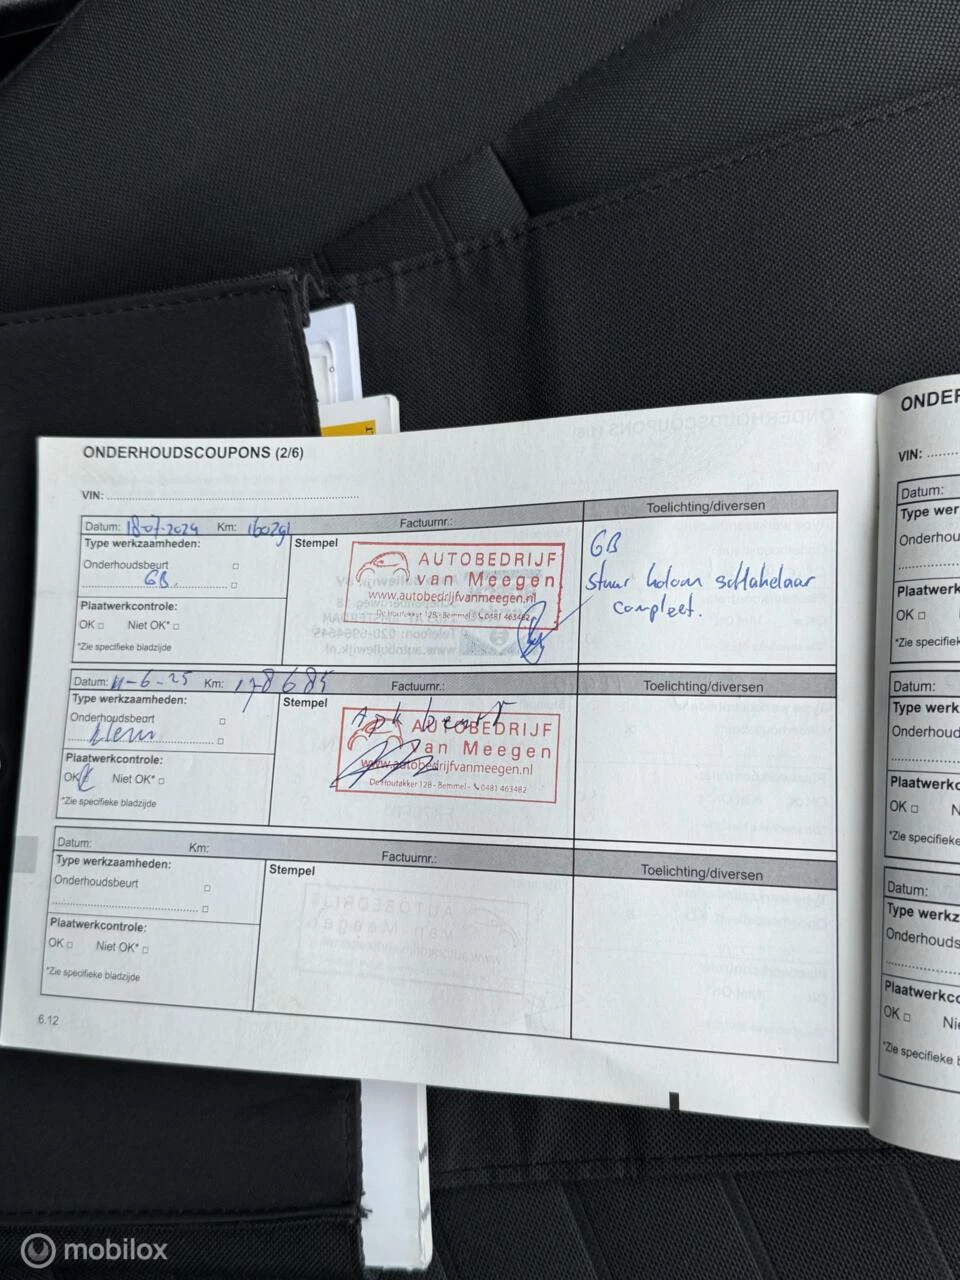 ONDERHOUDSCOUPONS (2/6)
VIN:
Datum: 18-07-2024 Km: 160291 Factuurnr.:
Toelichting/diversen
Type werkzaamheden:
Stempel
Onderhoudsbeurt
GB
Plaatwerkcontrole:
OK Niet OK*
*Zie specifieke bladzijde
AUTOBEDRIJF
van Meegen
www.autobedrijfvanmeegen.nl
De Houtakker 12B - Bemmel - 0481 463482
GB
Stuur kolom schakelaar
compleet.
Datum: 11-6-25 Km: 178685 Factuurnr.:
Toelichting/diversen
Type werkzaamheden:
Stempel
Onderhoudsbeurt
klein
Plaatwerkcontrole:
OK Niet OK*
*Zie specifieke bladzijde
Apk beurt
AUTOBEDRIJF
van Meegen
www.autobedrijfvanmeegen.nl
De Houtakker 12B - Bemmel - 0481 463482
Datum: Km: Factuurnr.:
Toelichting/diversen
Type werkzaamheden:
Stempel
Onderhoudsbeurt
Plaatwerkcontrole:
OK Niet OK*
*Zie specifieke bladzijde
6.12
ONDER
VIN:
Datum:
Type wer
Onderhou
Plaatwerk
OK
*Zie specifie
Datum:
Type werk
Onderhoud
Plaatwerkc
OK N
*Zie specifieke
Datum:
Type werkz
Onderhouds
Plaatwerkco
OK Nie
*Zie specifieke b
mobilox